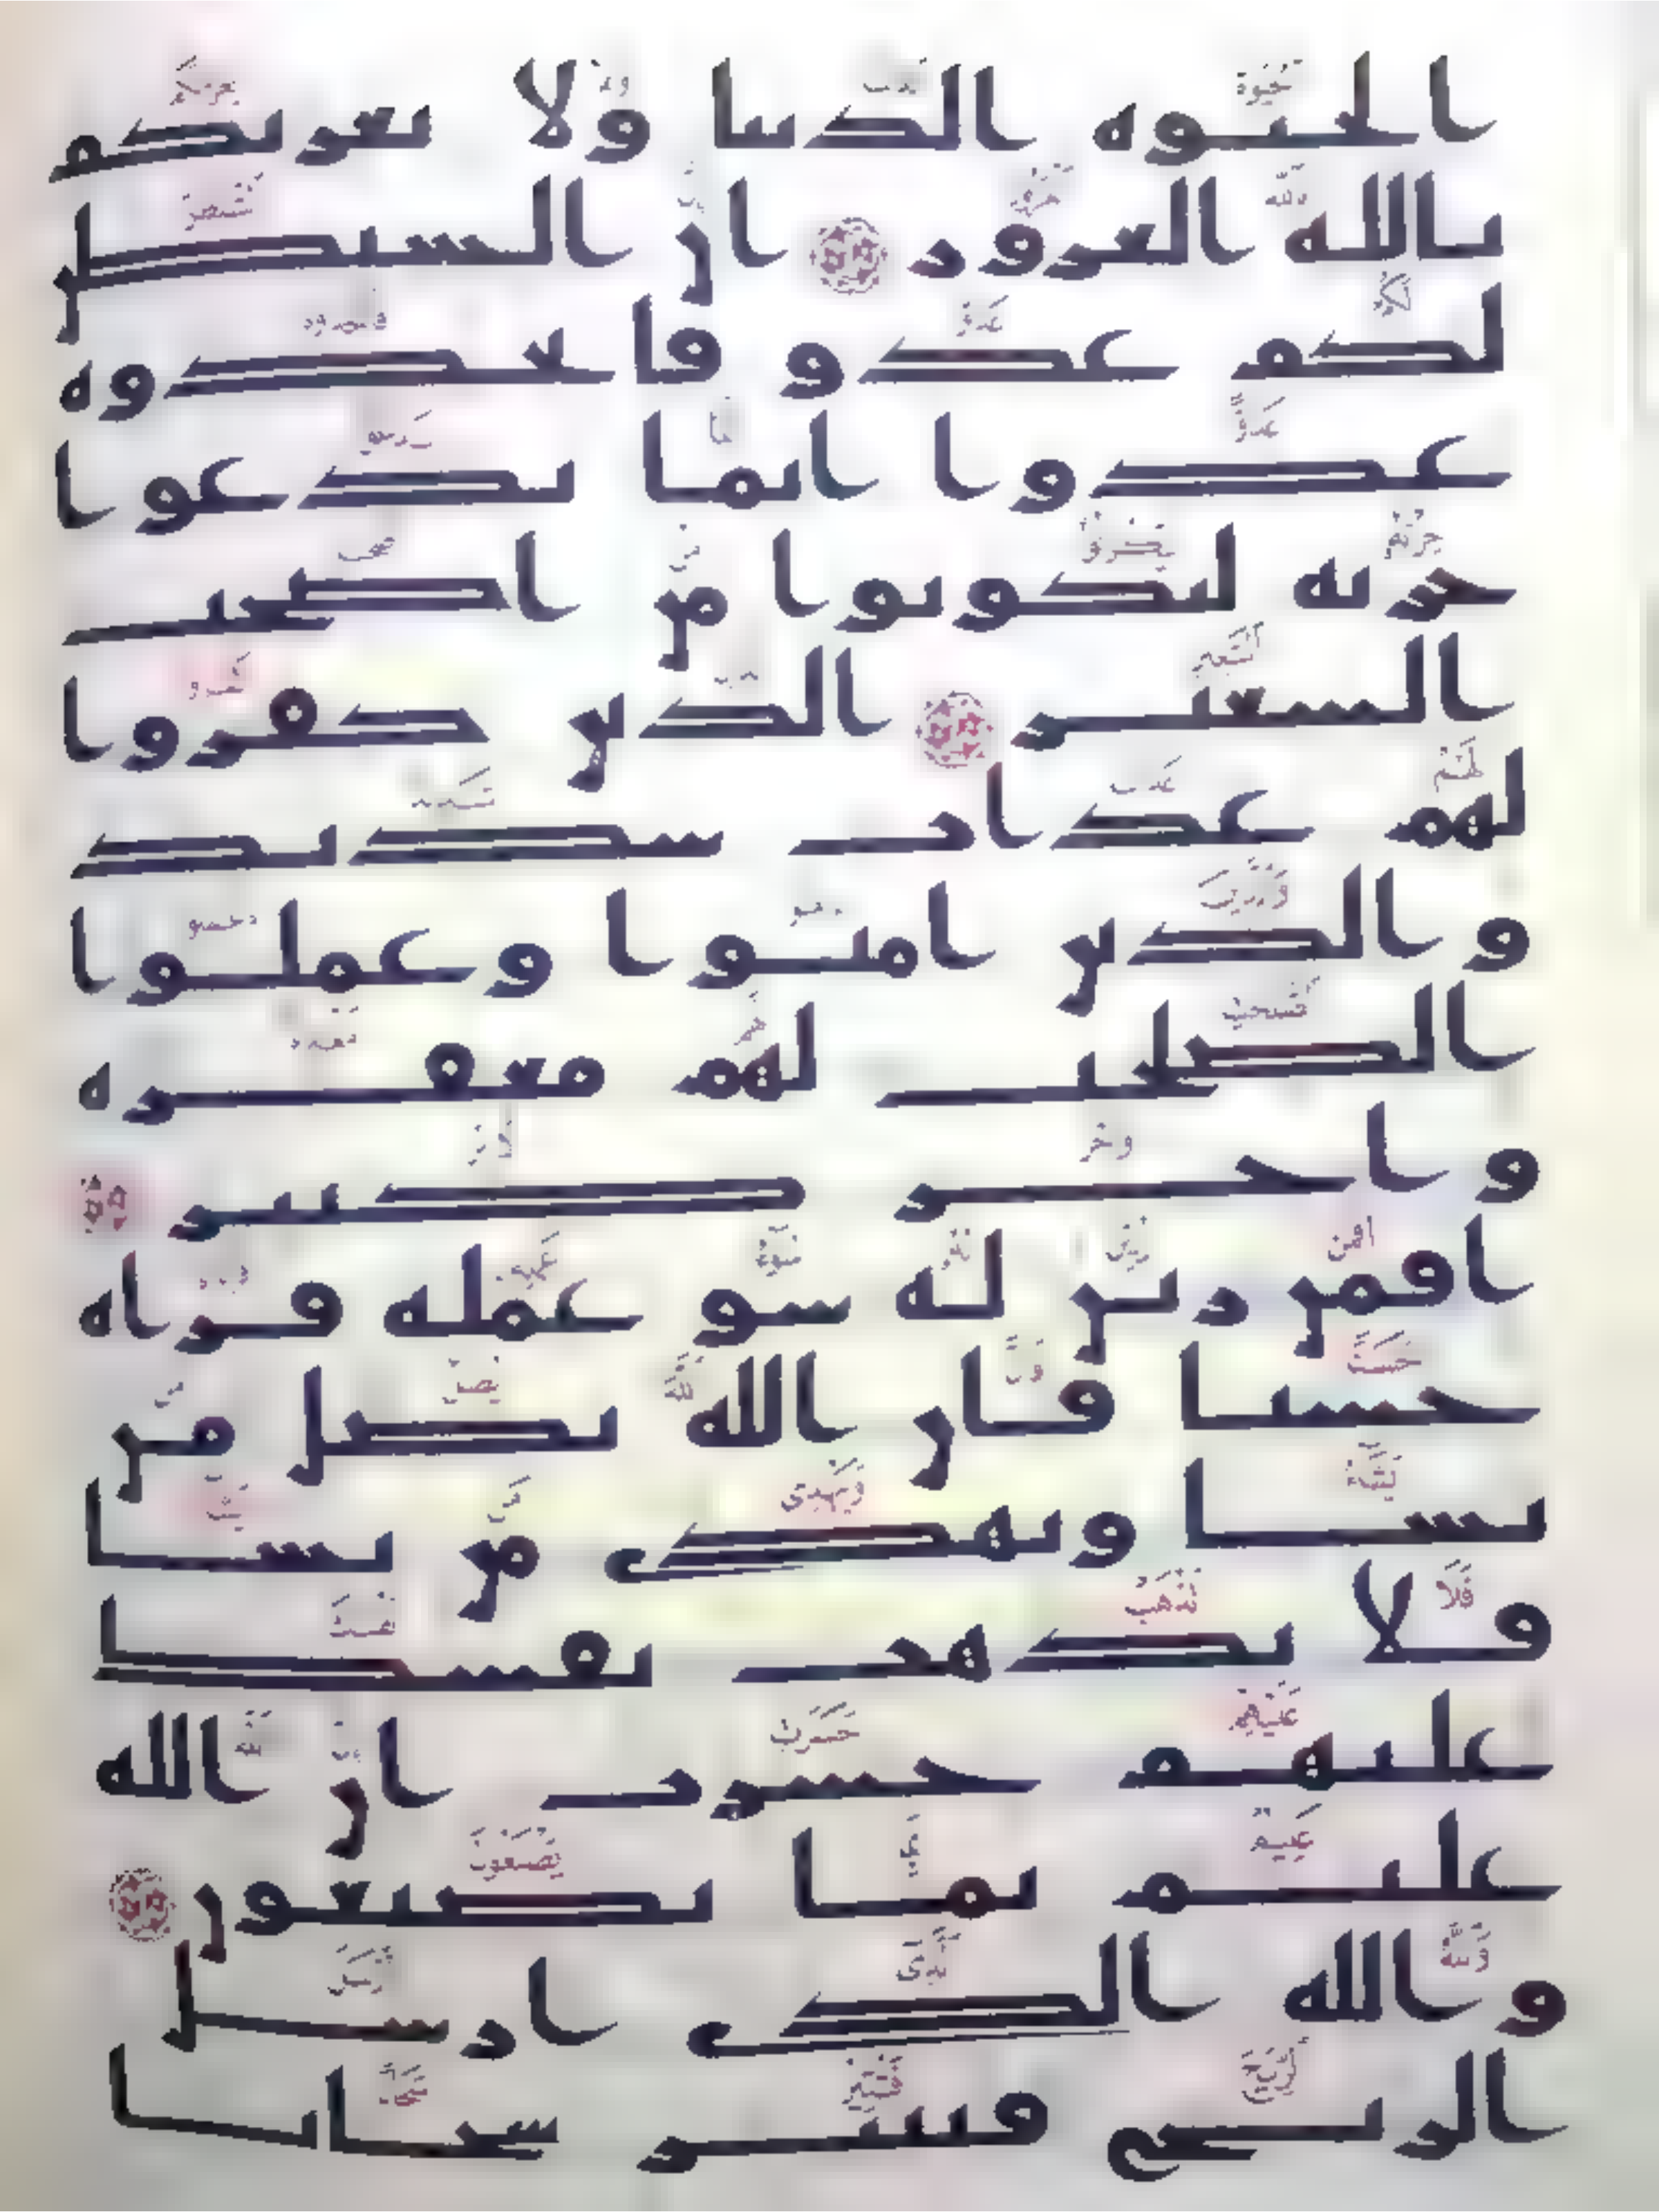 الحيوه الدنيا ولا يغرنكم
بالله الغرور ان الشيطن
لكم عدو فاتخذوه
عدوا انما يدعوا
حزبه ليكونوا من اصحب
السعير الذين كفروا
لهم عذاب شديد
والذين امنوا وعملوا
الصلحت لهم مغفره
واجر كبير
افمن زين له سو عمله فراه
حسنا فان الله يضل من
يشا ويهدي من يشا
فلا تذهب نفسك
عليهم حسرت ان الله
عليم بما يصنعون
والله الذي ارسل
الريح فتثير سحابا